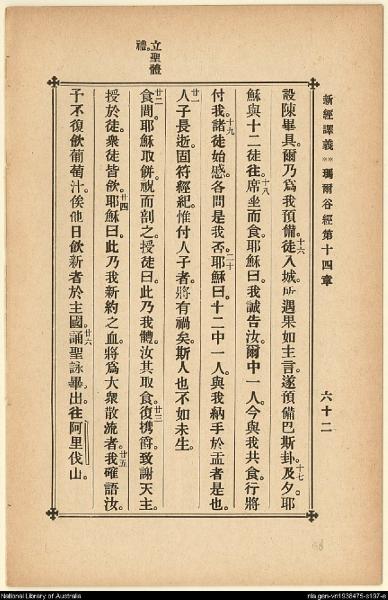 新經譯義 ** 瑪爾谷經第十四章 六十二
設陳畢具。爾乃爲我預備。十六徒入城。所遇果如主言。遂預備巴斯卦。十七及夕。耶
穌與十二徒往。十八席坐而食。耶穌曰。我誠告汝。爾中一人。今與我共食。行將
付我。十九諸徒始慼。各問是我否。二十耶穌曰。十二中一人。與我納手於盂者是也。
廿一人子長逝。固符經紀。惟付人子者。將有禍矣。斯人也。不如未生。
廿二食間。耶穌取餅。祝而剖之。授徒曰。此乃我體。汝其取食。廿三復携爵。致謝天主。
授於徒。衆徒皆飲。廿四耶穌曰。此乃我新約之血。將爲大衆散流者。廿五我確語汝。
予不復飲葡萄汁。俟他日飲新者於主國。廿六誦聖詠畢。出往阿里伐山。
立聖體
禮。
National Library of Australia
nla.gen-vn1938475-s137-e